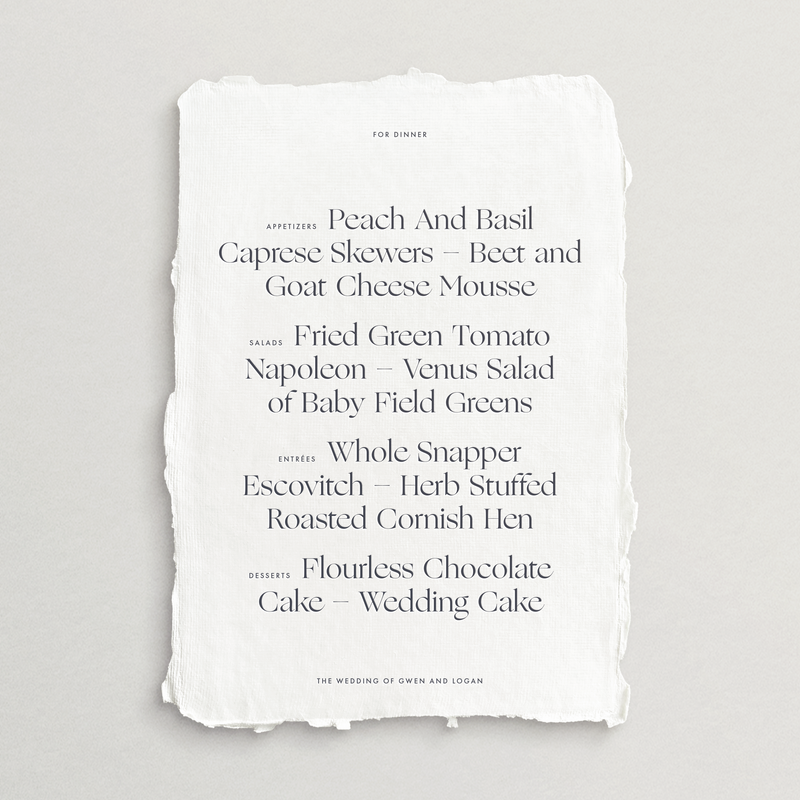 FOR DINNER
APPETIZERS Peach And Basil
Caprese Skewers – Beet and
Goat Cheese Mousse
SALADS Fried Green Tomato
Napoleon – Venus Salad
of Baby Field Greens
ENTRÉES Whole Snapper
Escovitch – Herb Stuffed
Roasted Cornish Hen
DESSERTS Flourless Chocolate
Cake – Wedding Cake
THE WEDDING OF GWEN AND LOGAN